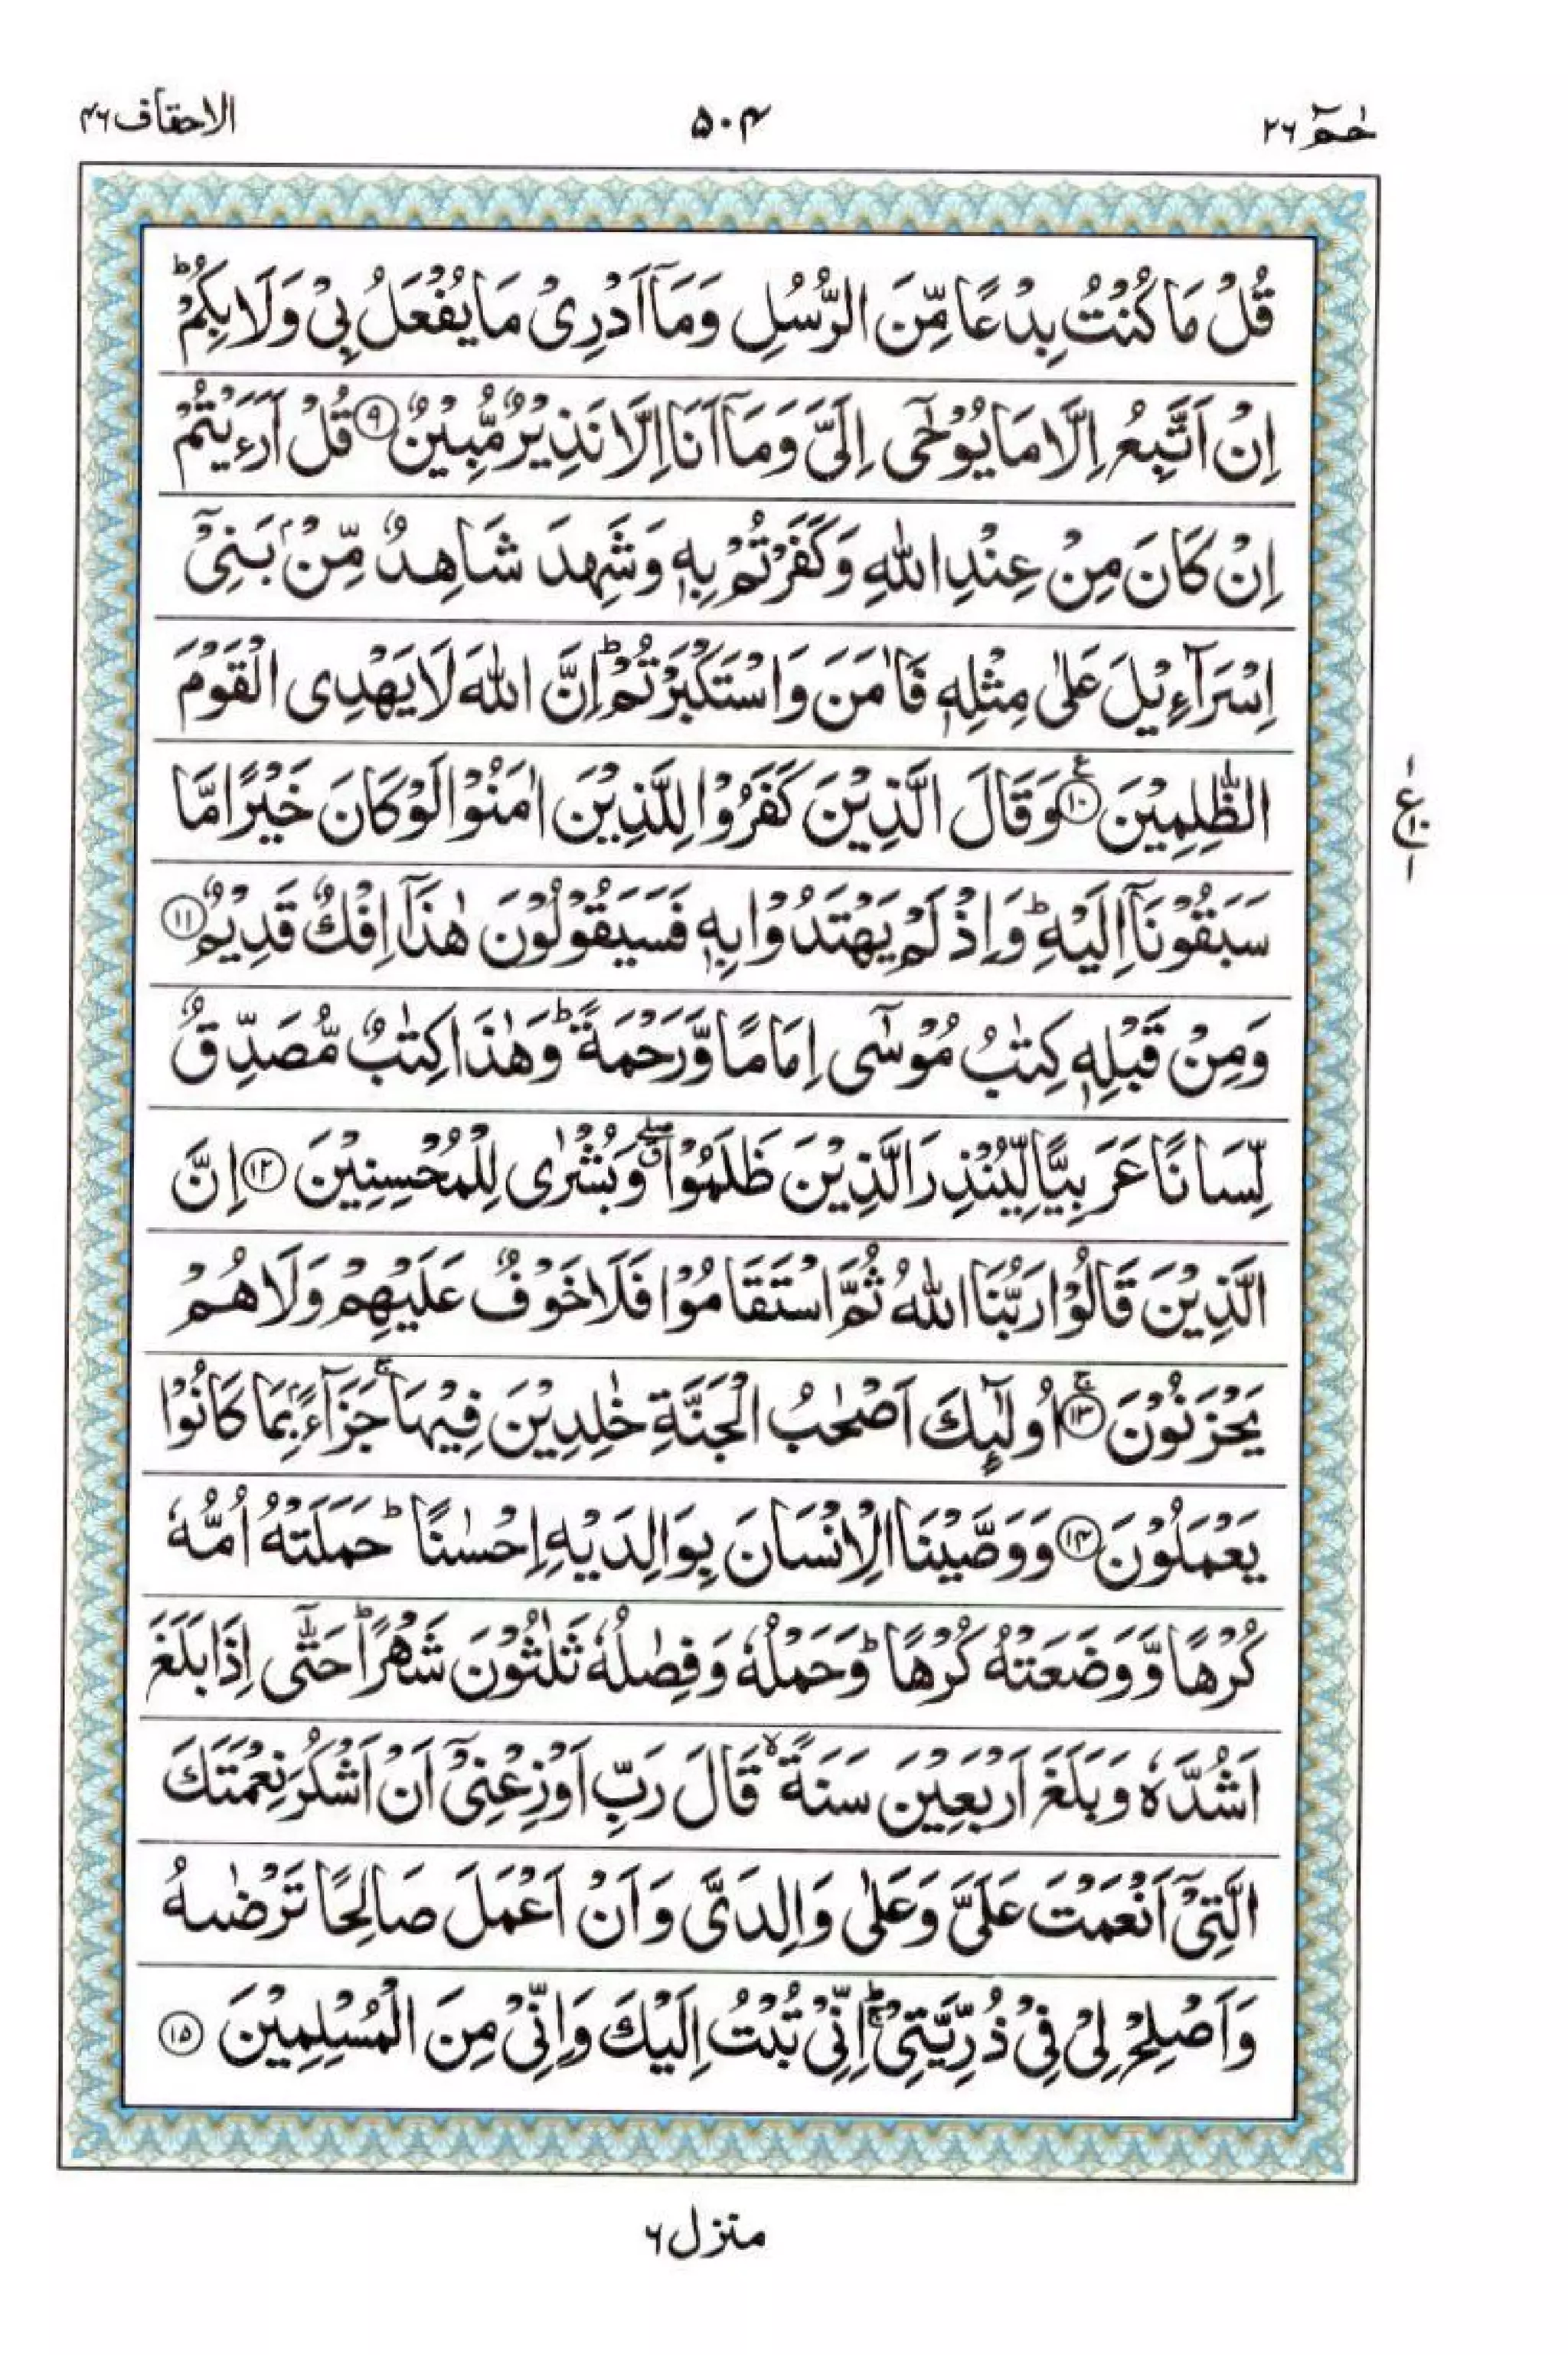 حٰمٓ ٢٦
٥٠٤
الاحقاف ٤٦
قُلْ مَا كُنْتُ بِدْعًا مِّنَ الرُّسُلِ وَمَآ اَدْرِىْ مَا يُفْعَلُ بِىْ وَلَا بِكُمْ ؕ
اِنْ اَتَّبِعُ اِلَّا مَا يُوْحٰٓى اِلَىَّ وَمَآ اَنَا اِلَّا نَذِيْرٌ مُّبِيْنٌ ۹ قُلْ اَرَءَيْتُمْ
اِنْ كَانَ مِنْ عِنْدِ اللّٰهِ وَكَفَرْتُمْ بِهٖ وَشَهِدَ شَاهِدٌ مِّنْۢ بَنِىْٓ
اِسْرَآءِيْلَ عَلٰى مِثْلِهٖ فَاٰمَنَ وَاسْتَكْبَرْتُمْ ؕ اِنَّ اللّٰهَ لَا يَهْدِى الْقَوْمَ
الظّٰلِمِيْنَ ۱۰ ع وَقَالَ الَّذِيْنَ كَفَرُوْا لِلَّذِيْنَ اٰمَنُوْا لَوْ كَانَ خَيْرًا مَّا
ع
١
١٠
١
سَبَقُوْنَآ اِلَيْهِ ؕ وَاِذْ لَمْ يَهْتَدُوْا بِهٖ فَسَيَقُوْلُوْنَ هٰذَآ اِفْكٌ قَدِيْمٌ ۱۱
وَمِنْ قَبْلِهٖ كِتٰبُ مُوْسٰٓى اِمَامًا وَّرَحْمَةً ؕ وَهٰذَا كِتٰبٌ مُّصَدِّقٌ
لِّسَانًا عَرَبِيًّا لِّيُنْذِرَ الَّذِيْنَ ظَلَمُوْا ۖق وَبُشْرٰى لِلْمُحْسِنِيْنَ ۱۲ اِنَّ
الَّذِيْنَ قَالُوْا رَبُّنَا اللّٰهُ ثُمَّ اسْتَقَامُوْا فَلَا خَوْفٌ عَلَيْهِمْ وَلَا هُمْ
يَحْزَنُوْنَ ۱۳ ۚ اُولٰٓئِكَ اَصْحٰبُ الْجَنَّةِ خٰلِدِيْنَ فِيْهَا ۚ جَزَآءًۢ بِمَا كَانُوْا
يَعْمَلُوْنَ ۱۴ وَوَصَّيْنَا الْاِنْسَانَ بِوَالِدَيْهِ اِحْسٰنًا ؕ حَمَلَتْهُ اُمُّهٗ
كُرْهًا وَّوَضَعَتْهُ كُرْهًا ؕ وَحَمْلُهٗ وَفِصٰلُهٗ ثَلٰثُوْنَ شَهْرًا ؕ حَتّٰٓى اِذَا بَلَغَ
اَشُدَّهٗ وَبَلَغَ اَرْبَعِيْنَ سَنَةً ۙ قَالَ رَبِّ اَوْزِعْنِىْٓ اَنْ اَشْكُرَ نِعْمَتَكَ
الَّتِىْٓ اَنْعَمْتَ عَلَىَّ وَعَلٰى وَالِدَىَّ وَاَنْ اَعْمَلَ صَالِحًا تَرْضٰىهُ
وَاَصْلِحْ لِىْ فِىْ ذُرِّيَّتِىْ ؕۚ اِنِّىْ تُبْتُ اِلَيْكَ وَاِنِّىْ مِنَ الْمُسْلِمِيْنَ ۱۵
منزل ٦